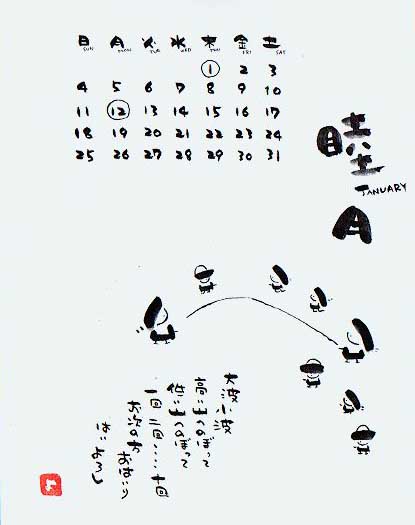 日 月 火 水 木 金 土
SUN MON TUE WED THU FRI SAT
1 2 3
4 5 6 7 8 9 10
11 12 13 14 15 16 17
18 19 20 21 22 23 24
25 26 27 28 29 30 31
睦月
JANUARY
大波小波
高い山へのぼって
低い山へのぼって
一回 二回‥‥十回
お次の方 おはいり
はいよろし
よ